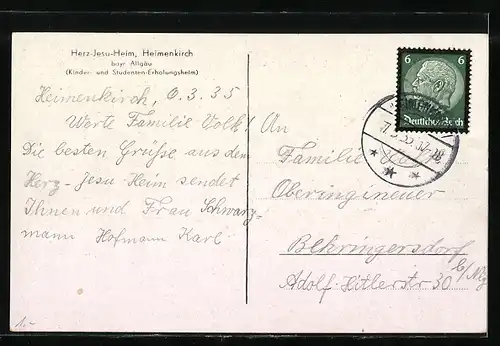 Herz-Jesu-Heim, Heimenkirch
bayr Allgäu
(Kinder- und Studenten-Erholungsheim)
Heimenkirch, 6.3.35
Werte Familie Volk!
Die besten Grüße aus dem
Herz-Jesu-Heim sendet
Ihnen und Frau Schwarz-
mann Hofmann Karl
1.-
6 6
Deutsches Reich
An
Familie Volk
Oberingineuer
Behringersdorf
b/Nbg
Adolf-Hitlerstr 30